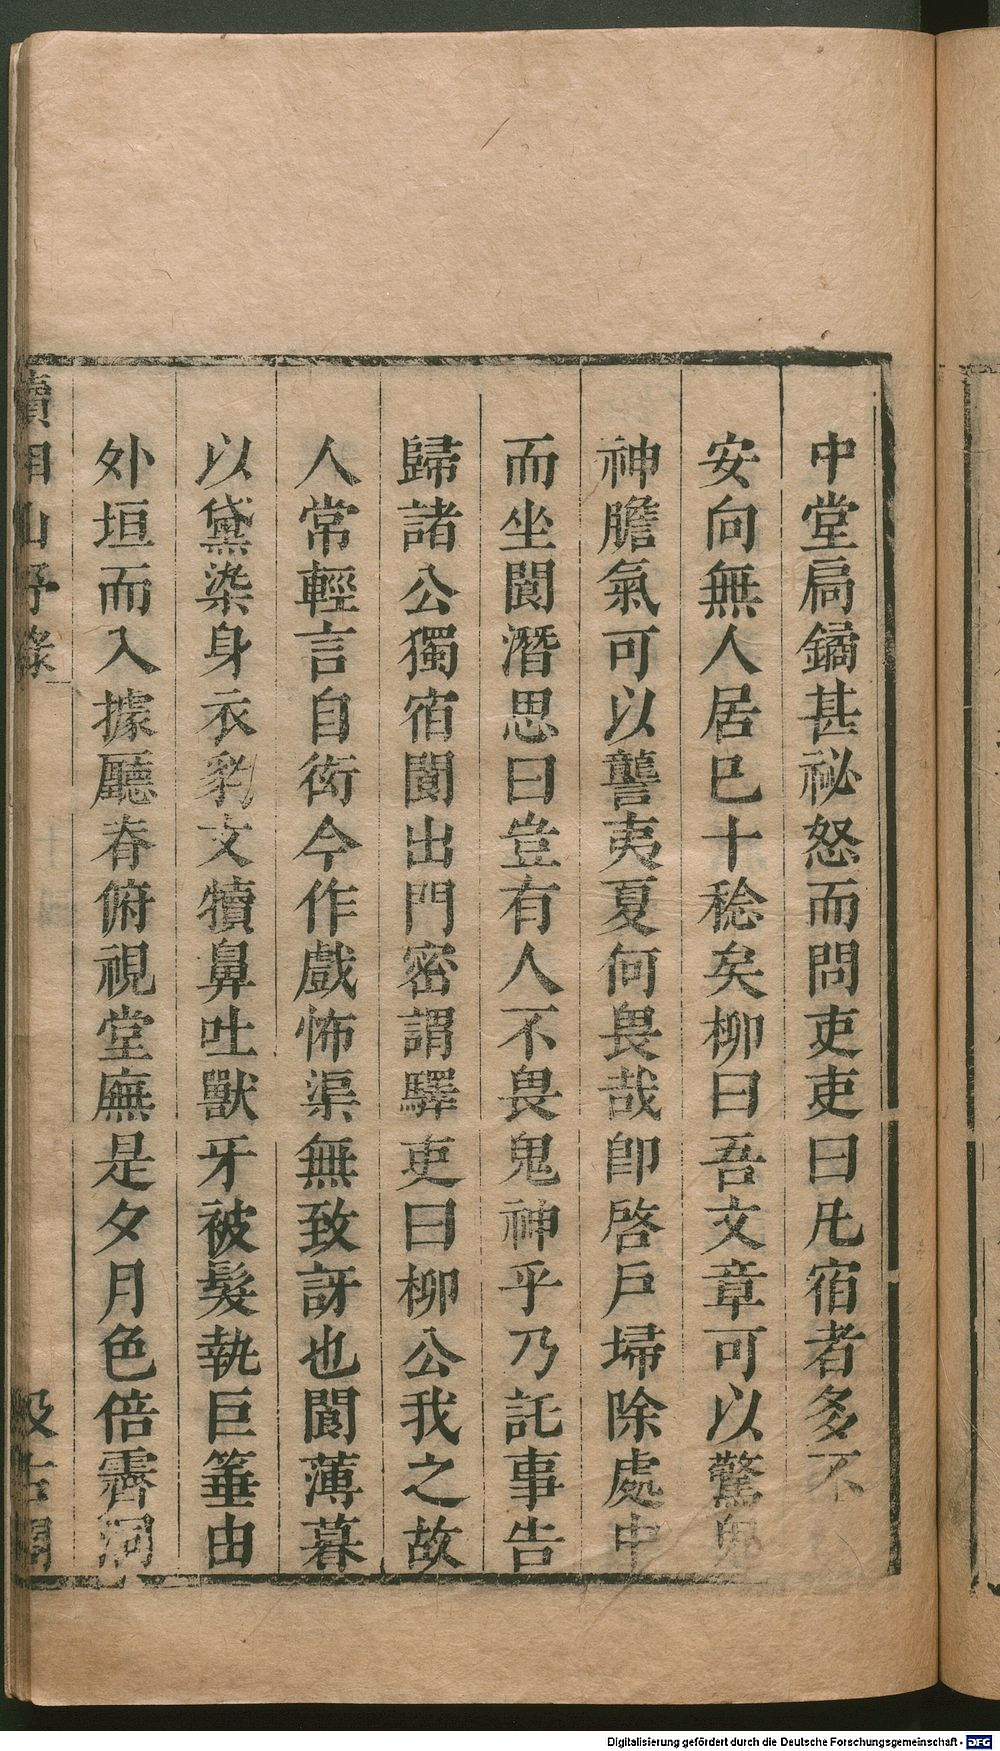 中堂扃鐍甚祕怒而問吏吏曰凡宿者多不
安向無人居已十稔矣柳曰吾文章可以驚鬼
神膽氣可以讋夷夏何畏哉即啓戶埽除處中
而坐閬潛思曰豈有人不畏鬼神乎乃託事告
歸諸公獨宿閬出門密謂驛吏曰柳公我之故
人常輕言自衒今作戲怖渠無致訝也閬薄暮
以黛染身衣豹文犢鼻吐獸牙被髮執巨箠由
外垣而入據廳脊俯視堂廡是夕月色倍霽洞
續湘山野錄
汲古閣
Digitalisierung gefördert durch die Deutsche Forschungsgemeinschaft - DFG